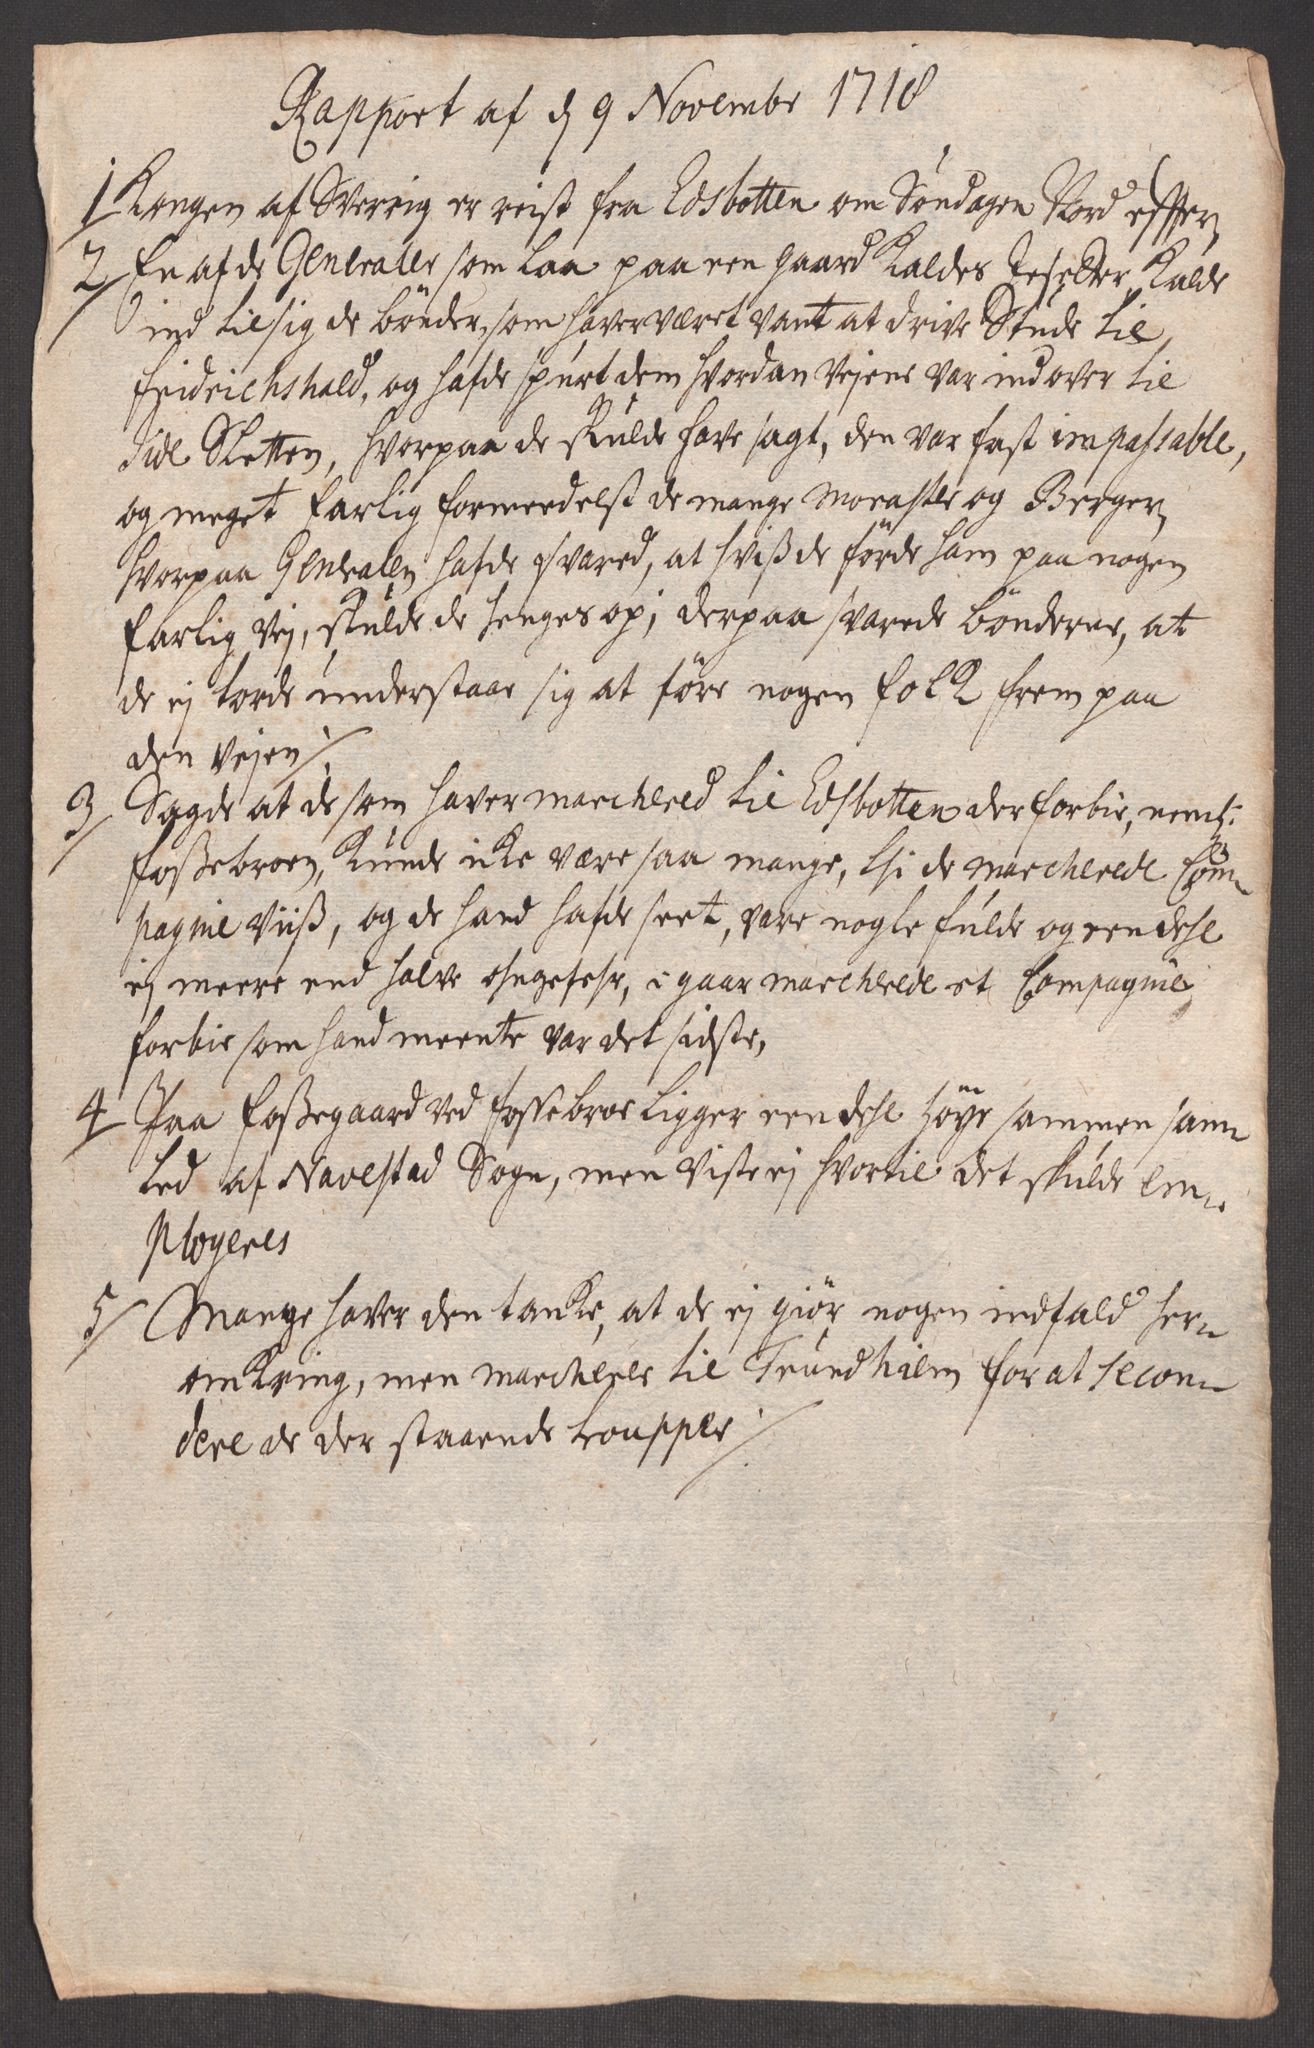 Rapport af d 9 Novembr 1718
1 Kongen af Sverrig er reist fra Edsbotten om Söndagen Nord efter,
2/ En af de Generaler som laa paa een gaard Kaldes Kalde
ind til sig de bönder, som haver været vant at drive Stude til
Fridrichshald, og hafde spurt dem hvordan Vejene var ind over til
Side Sletten, hvorpaa de skulde have sagt, den var fast impassable,
og meget farlig formedelst de mange moraster og Berger,
hvorpaa Generalen hafde svared, at hviß de förde ham paa nogen
farlig Vej, skulde de henges op; derpaa svarede bönderne, at
de ej torde understaae sig at före nogen folk frem paa
den Vejen /.
3/ Sagde at de som haver marchered til Edsbotten der forbie, neml:
Foßebroen, Kunde icke være saa mange, thi de marcherede Com-
pagnie Viiß, og de hand hafde seet, vare nogle fulde og een dehl
ej meere end halve ohngefehr, i gaar marcherede et Compagnie
forbie som hand meente var det sidste,
4/ Paa Foßegaard ved Fossebroe ligger een dehl höye sammen sam-
led af Navestad Sogn, men viste ej hvortil det skulde em-
ployeres
5/ Mange haver den tanke, at de ej giör nogen indfald her
omkring, men marcherer til Trundhiem for at secon-
dere de der staaende troupper /.